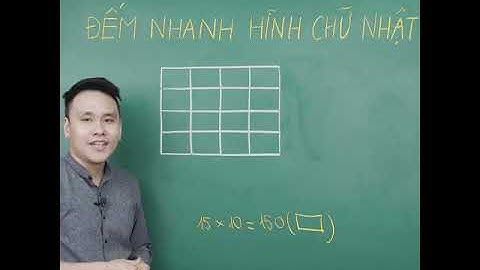 ĐẾM NHANH HÌNH CHỮ NHẬT
15 × 10 = 150 (▭)